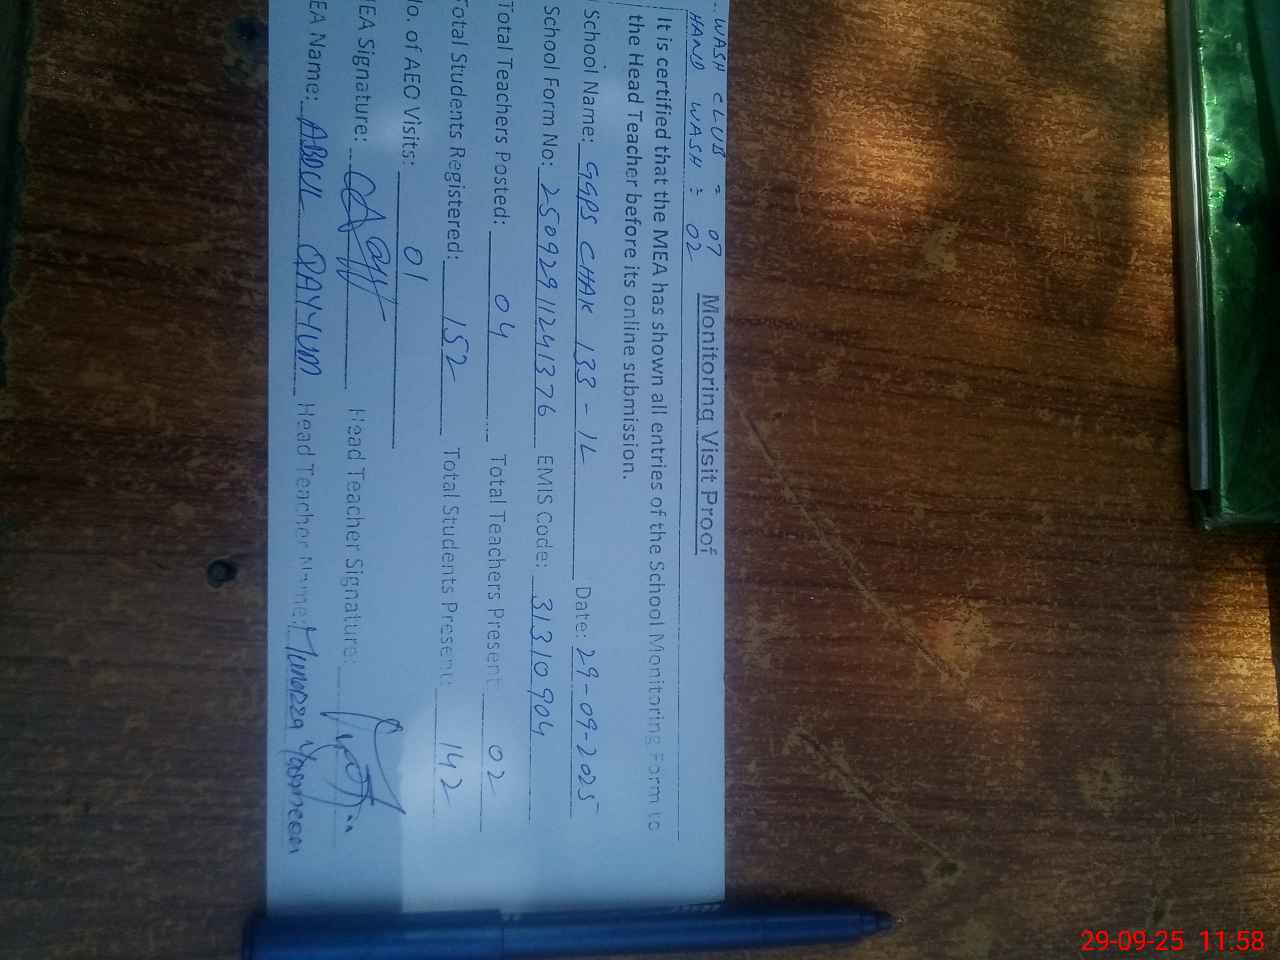 WASH CLUB = 07
HAND WASH = 02
Monitoring Visit Proof
It is certified that the MEA has shown all entries of the School Monitoring Form to
the Head Teacher before its online submission.
School Name: GGPS CHAK 133-1L Date: 29-09-2025
School Form No: 25092911241376 EMIS Code: 31310904
Total Teachers Posted: 04 Total Teachers Present: 02
Total Students Registered: 152 Total Students Present: 142
No. of AEO Visits: 01
MEA Signature: Head Teacher Signature:
MEA Name: ABDUL QAYYUM Head Teacher Name: Munazza Yasmeen
29-09-25 11:58